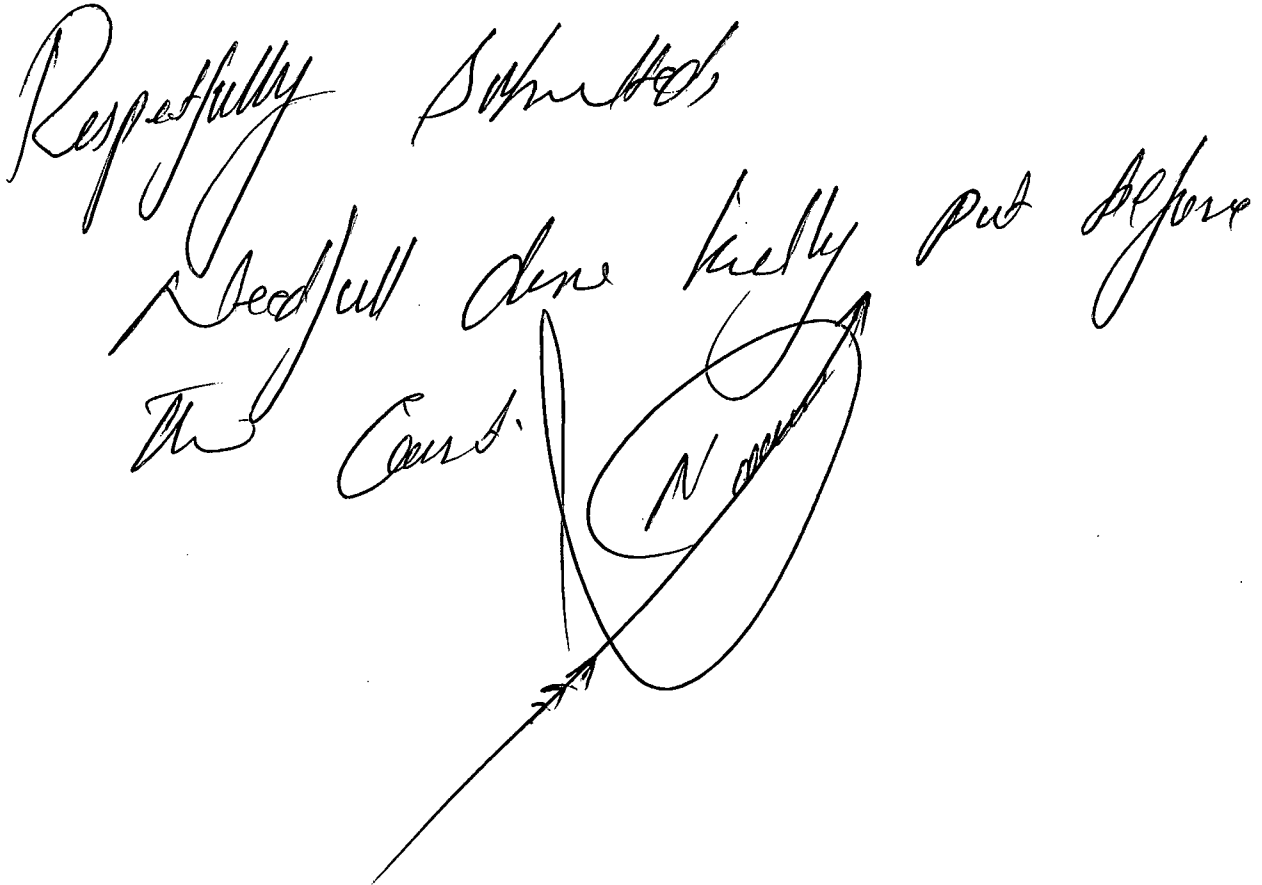 Respetfully Submitted,
Needfull done kindly put before
The Court.